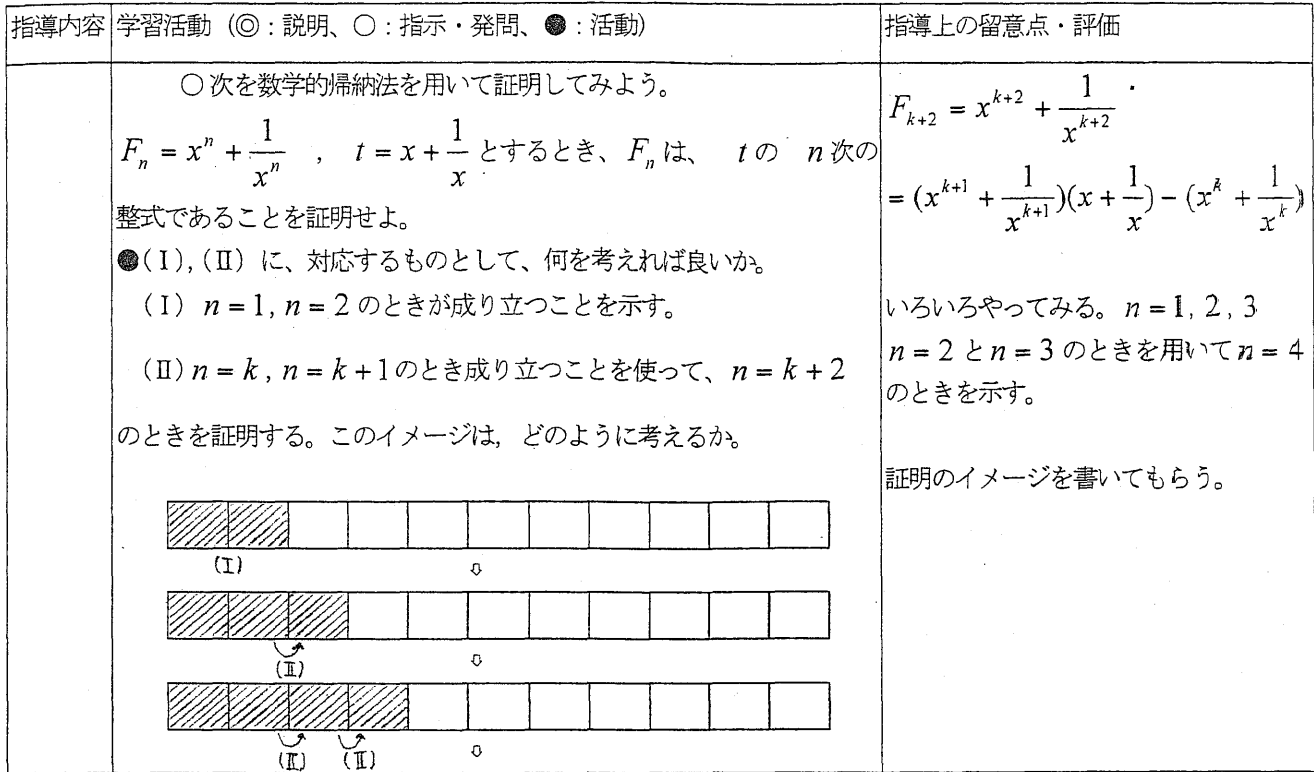 指導内容
学習活動（◎：説明、○：指示・発問、●：活動）
指導上の留意点・評価
○次を数学的帰納法を用いて証明してみよう。
F_n = x^n + 1/x^n , t = x + 1/x とするとき、F_n は、 t の n 次の
整式であることを証明せよ。
●(Ⅰ),(Ⅱ) に、対応するものとして、何を考えれば良いか。
(Ⅰ) n = 1, n = 2 のときが成り立つことを示す。
(Ⅱ) n = k, n = k + 1 のとき成り立つことを使って、n = k + 2
のときを証明する。このイメージは, どのように考えるか。
(Ⅰ)
⇩
(Ⅱ)
⇩
(Ⅱ) (Ⅱ)
⇩
F_{k+2} = x^{k+2} + 1/x^{k+2}
= (x^{k+1} + 1/x^{k+1})(x + 1/x) − (x^k + 1/x^k)
いろいろやってみる。n = 1, 2, 3
n = 2 と n = 3 のときを用いて n = 4
のときを示す。
証明のイメージを書いてもらう。